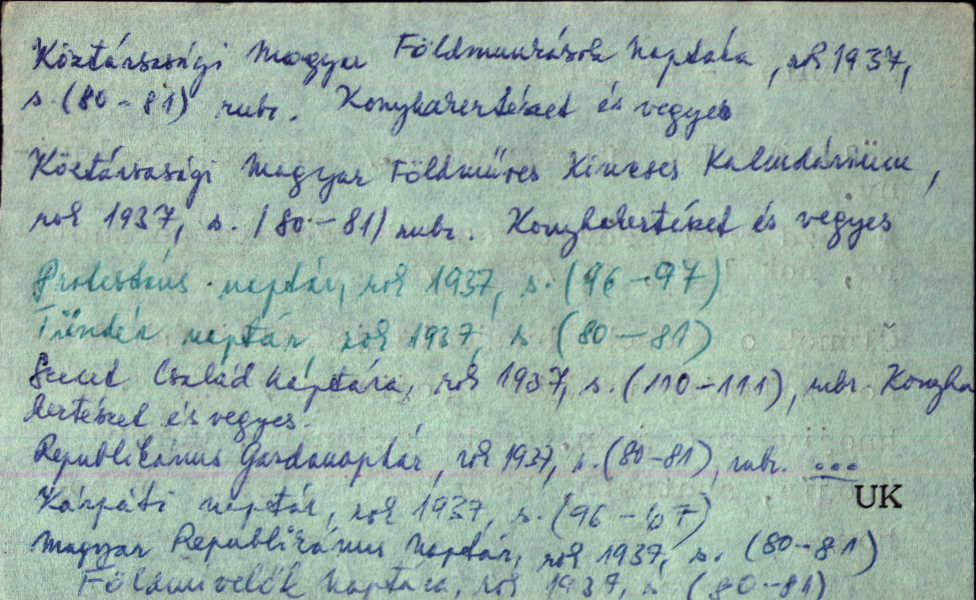 Köztársasági Magyar Földmunkások Naptára, rok 1937,
s. (80-81) rubr. Konyhakertészet és vegyes
Köztársasági Magyar Földműves Kincses Kalendárium,
rok 1937, s. (80-81) rubr. Konyhakertészet és vegyes
Protestáns naptár, rok 1937, s. (96-97)
Tündér naptár rok 1937, s. (80-81)
Szent Család Naptára, rok 1937, s. (110-111), rubr. Konyha
kertészet és vegyes.
Republikánus Gazdanaptár, rok 1937, s. (80-81), rubr. ...
UK
Kárpáti naptár, rok 1937, s. (96-97)
Magyar Republikánus Naptár, rok 1937, s. (80-81)
Földművelők Naptára, rok 1937, s. (80-81)